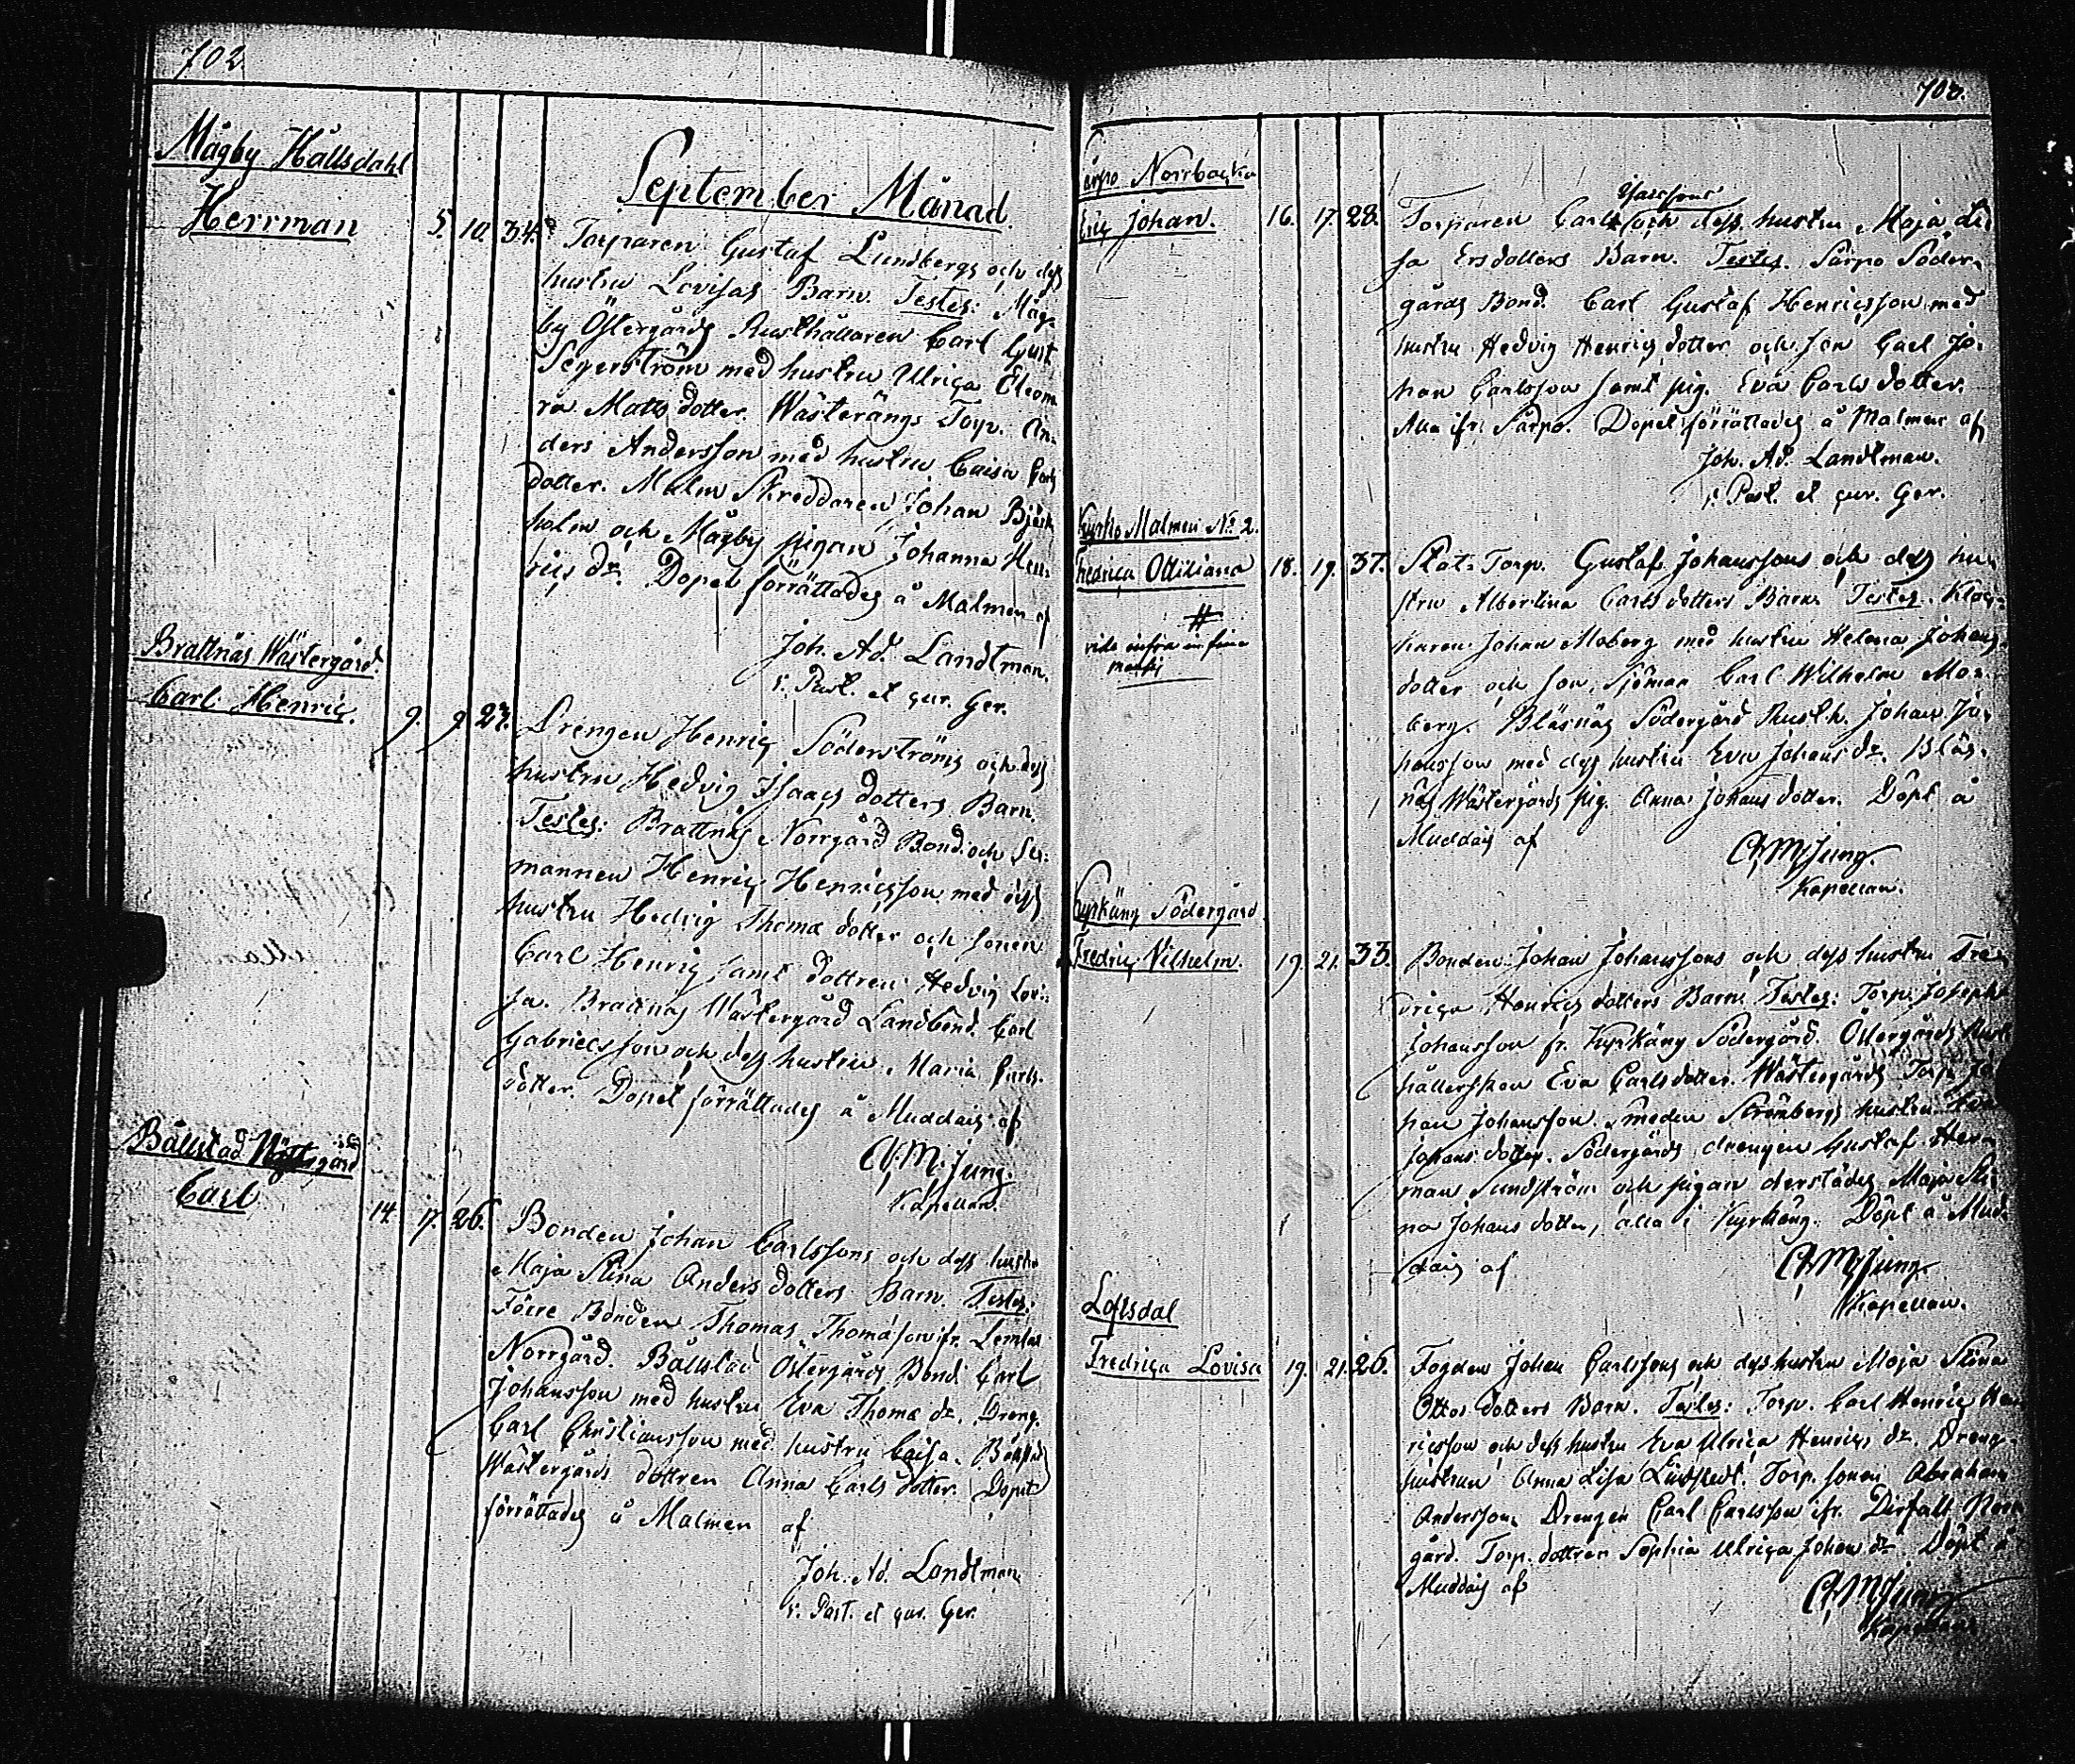 702.
Mågby Hållsdahl
Herrman
5. 10. 34.
September Månad.
Torparen Gustaf Lundbergs och dess
hustru Lovisas Barn. Testes: Måg-
by Östergårds Rusthållaren Carl Gust.
Segerström med hustru Ulrica Eleono
ra Matts dotter. Wästerängs Torp. An-
ders Andersson med hustru Caisa Carls
dotter. Malm Skreddaren Johan Björk
holm och Mågby pigan Johanna Hen-
rics dr. Dopet förrättades å Malmen af
Joh. Ad. Landtman.
v. Past. et cur. Ger.
Brattnäs Wästergård.
Carl Henric.
9. 9. 27.
Drengen Henric Söderströms och dess
hustru Hedvig Isaacs dotters Barn.
Testes: Brattnäs Norrgård Bond. och
mannen Henric Henricsson med dess
hustru Hedvig Thomæ dotter och sonen
Carl Henric samt dottren Hedvig Lovi-
sa. Brattnäs Wästergård Landbond. Carl
Gabrielsson och dess hustru Maria Carls-
dotter. Dopet förrättades å Muddais af
C.M. Jung.
Kapellan.
Bällstad
Carl
14. 17. 26.
Bonden Johan Carlssons och dess hustru
Maja Stina Anders dotters Barn. Testes:
Förre Bonden Thomas Thomasson ifr. Lemlax
Norrgård. Bällstad Östergårds Bond. Carl
Johansson med hustru Eva Thomæ dr. Dreng.
Carl Christiansson med hustru Caisa. Bällstad
Wästergårds dottren Anna Carls dotter. Dopet
förrättades å Malmen af
Joh. Ad. Landtman
v. Past. et cur. Ger.
702.
Sarpo Norrbacka
Eric Johan.
16. 17. 28.
Isacssons
Torparen Carl och dess hustru Maja Li-
sa Ersdotters Barn. Testes. Särpo Söder-
gårds Bond. Carl Gustaf Henricsson med
hustru Hedvig Henrics dotter och son Carl Jo-
han Carlsson samt pig. Eva Carls dotter.
Alla ifr. Särpo. Dopet förrättades å Malmen af
Joh. Ad. Landtman.
v. Past. et cur. Ger.
Kyrko Malmen No. 2.
Fredrica Ottiliana
#
vide infra in fine
18. 19. 37.
Stat-Torp. Gustaf Johanssons och dess hu-
stru Albertina Carls dotters Barn. Testes. Kloc-
karen Johan Moberg med hustru Helena Johans-
dotter och son, Sjöman Carl Wilhelm Mo-
berg. Bläsnäs Södergård Rusth. Johan Jo-
hansson med dess hustru Eva Johans dr. Bläs-
näs Wästergårds pig. Anna Johans dotter. Döpt å
Muddais af
C.M. Jung.
Kapellan.
Kyrkäng Södergård
Fredric Vilhelm.
19. 21. 33.
Bonden Johan Johanssons och dess hustru Fre-
drica Henrics dotters Barn. Testes: Torp. Joseph
Johansson fr. Kyrkäng Södergård. Östergårds Rust-
hållerskan Eva Carls dotter. Wästergårds Torp. Jo-
han Johansson. Smeden Strömbergs hustru Eva
Johans dotter. Södergårds drengen Gustaf Her-
man Sundström och pigan derstädes Maja Sti-
na Johans dotter, alla i Kyrkäng. Döpt å Mud-
dais af
C.M. Jung.
Kapellan.
Lofsdal
Fredrica Lovisa
19. 21. 26.
Fogden Johan Carlssons och dess hustru Maja Stina
Ottos dotters Barn. Testes: Torp. Carl Henric Hen-
ricsson och dess hustru Eva Ulrica Henrics dr. Dreng-
hustrun Anna Lisa. Torp. sonen Abraham
Andersson, Drengen Carl Carlsson ifr. Norr-
gård. Torp. dottren Sophia Ulrica Johans dr. Döpt å
Muddais af
C.M. Jung
Kapellan.